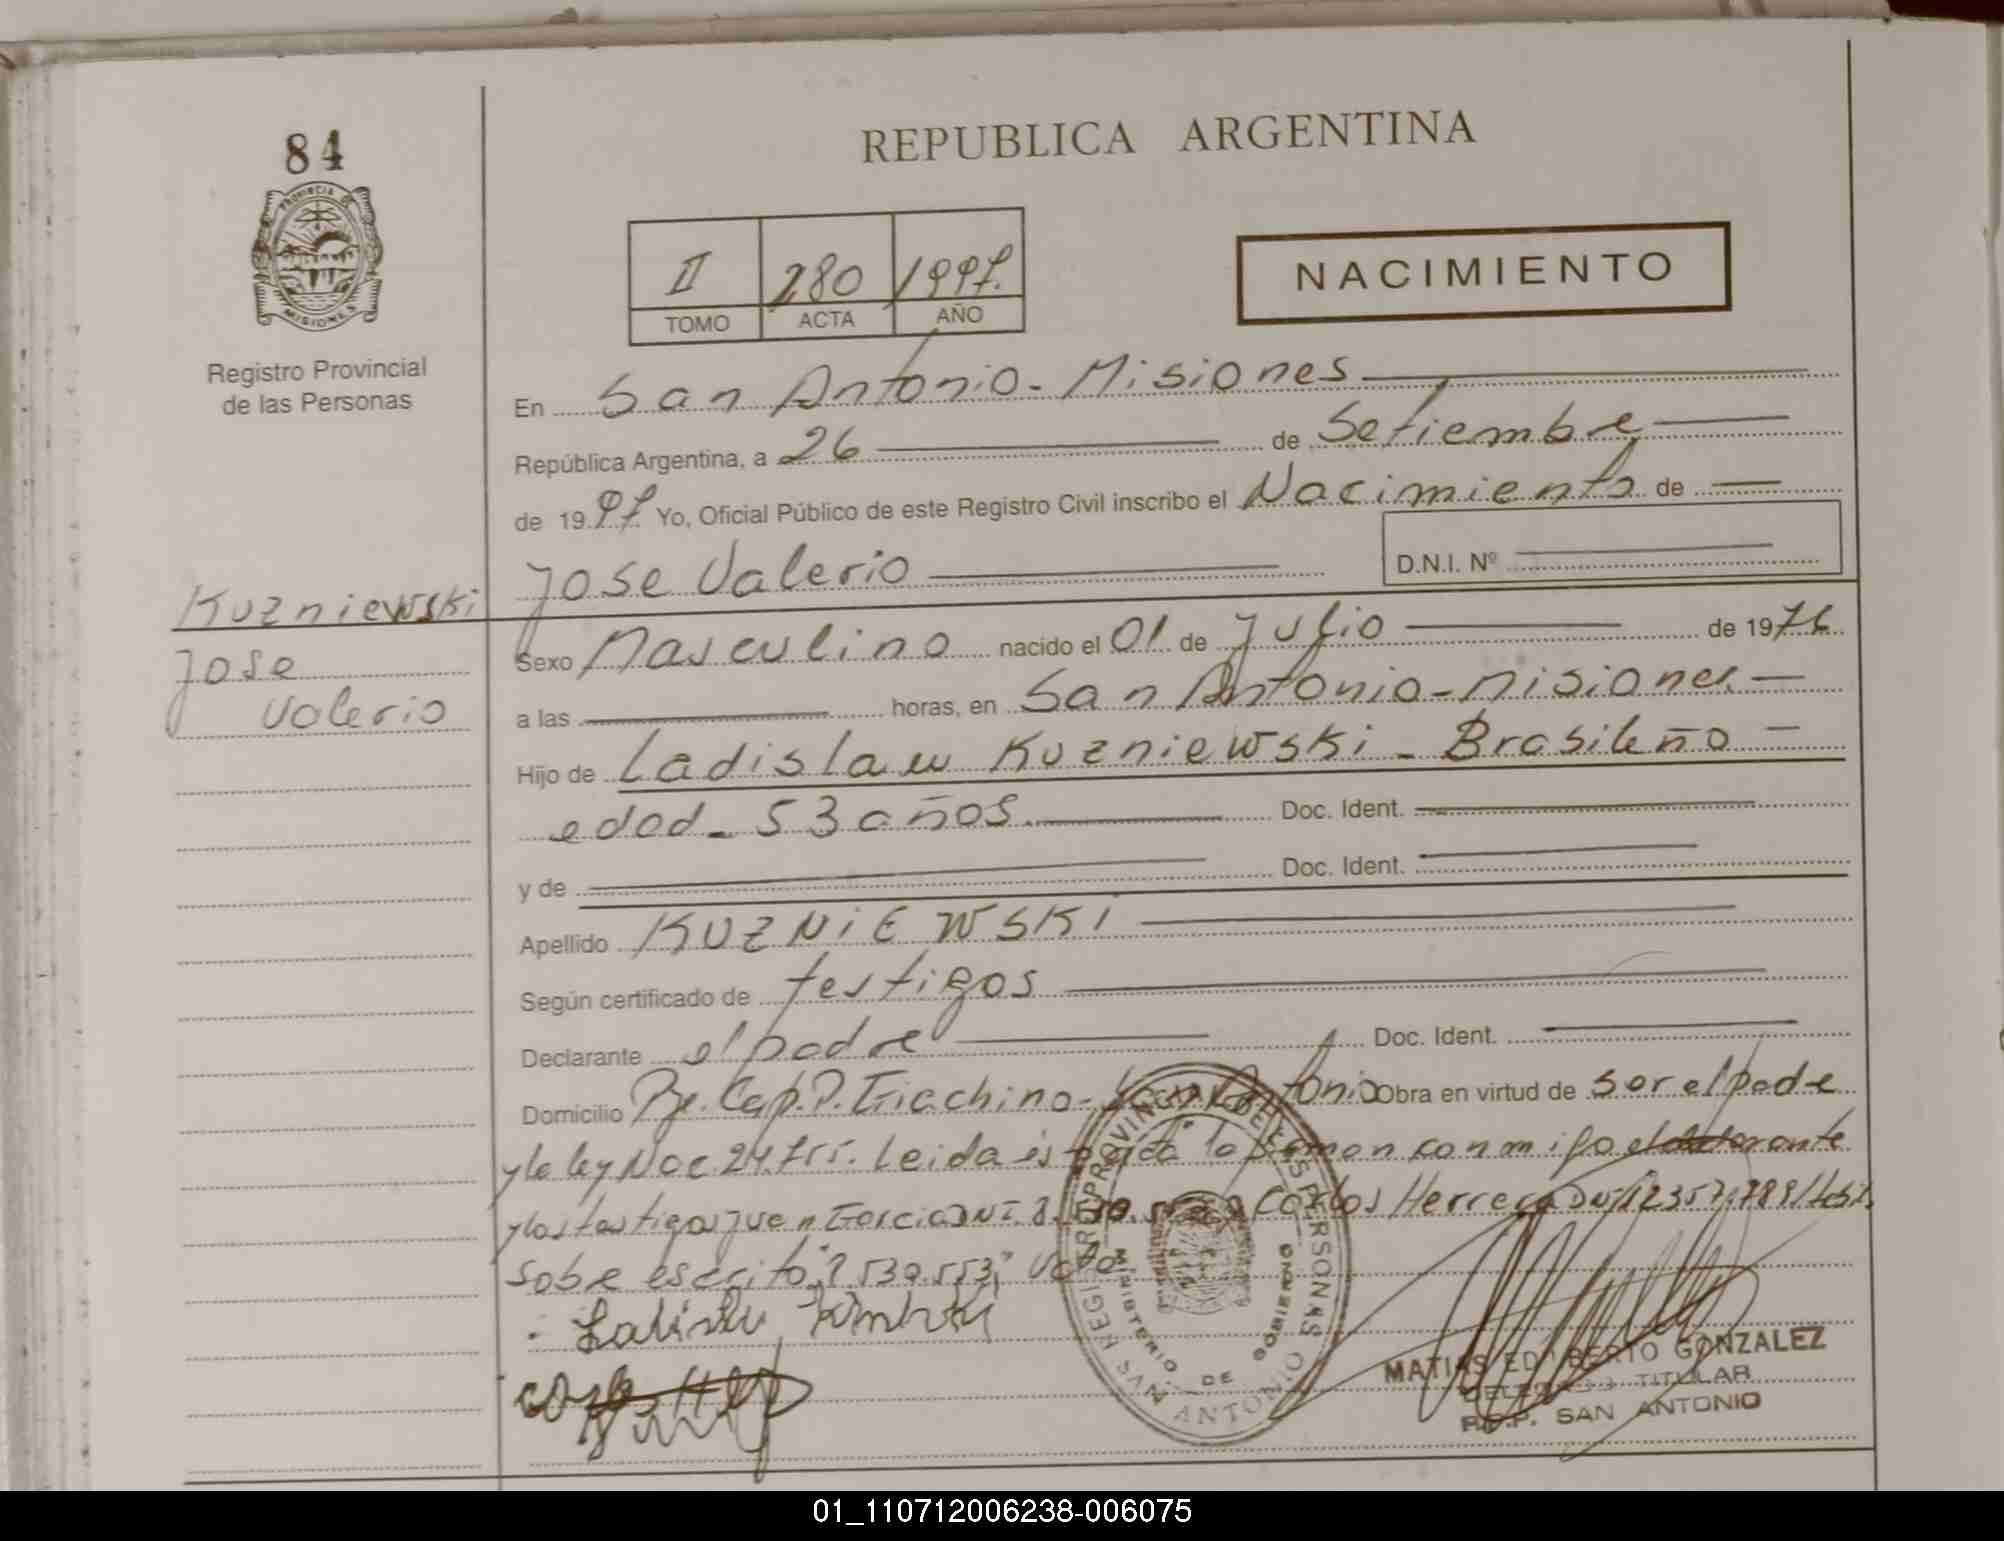 84
PROVINCIA DE
MISIONES
Registro Provincial
de las Personas
REPUBLICA ARGENTINA
II 280 1997.
TOMO ACTA AÑO
NACIMIENTO
En San Antonio - Misiones
República Argentina, a 26 de Setiembre
de 1997. Yo, Oficial Público de este Registro Civil inscribo el Nacimiento de
Jose Valerio D.N.I. Nº
Kuzniewski
Jose
Valerio
Sexo Masculino nacido el 01 de Julio de 1976
a las horas, en San Antonio - Misiones.
Hijo de Ladislau Kuzniewski - Brasileño
edad - 53 años. Doc. Ident.
y de Doc. Ident.
Apellido KUZNIEWSKI
Según certificado de testigos
Declarante el padre Doc. Ident.
Domicilio Pje. Cap. P. Giachino - San Antonio Obra en virtud de ser el padre
y la ley Leida esta acta la firman conmigo el
y los testigos Juan Garcia DNI Carlos Herrera DNI 12357.789
Sobre escrito "8.530.553" Vale
REGISTRO PROVINCIAL DE LAS PERSONAS
MINISTERIO DE GOBIERNO
SAN ANTONIO
MATIAS EDILBERTO GONZALEZ
DELEGADO TITULAR
R.P.P. SAN ANTONIO
01_110712006238-006075